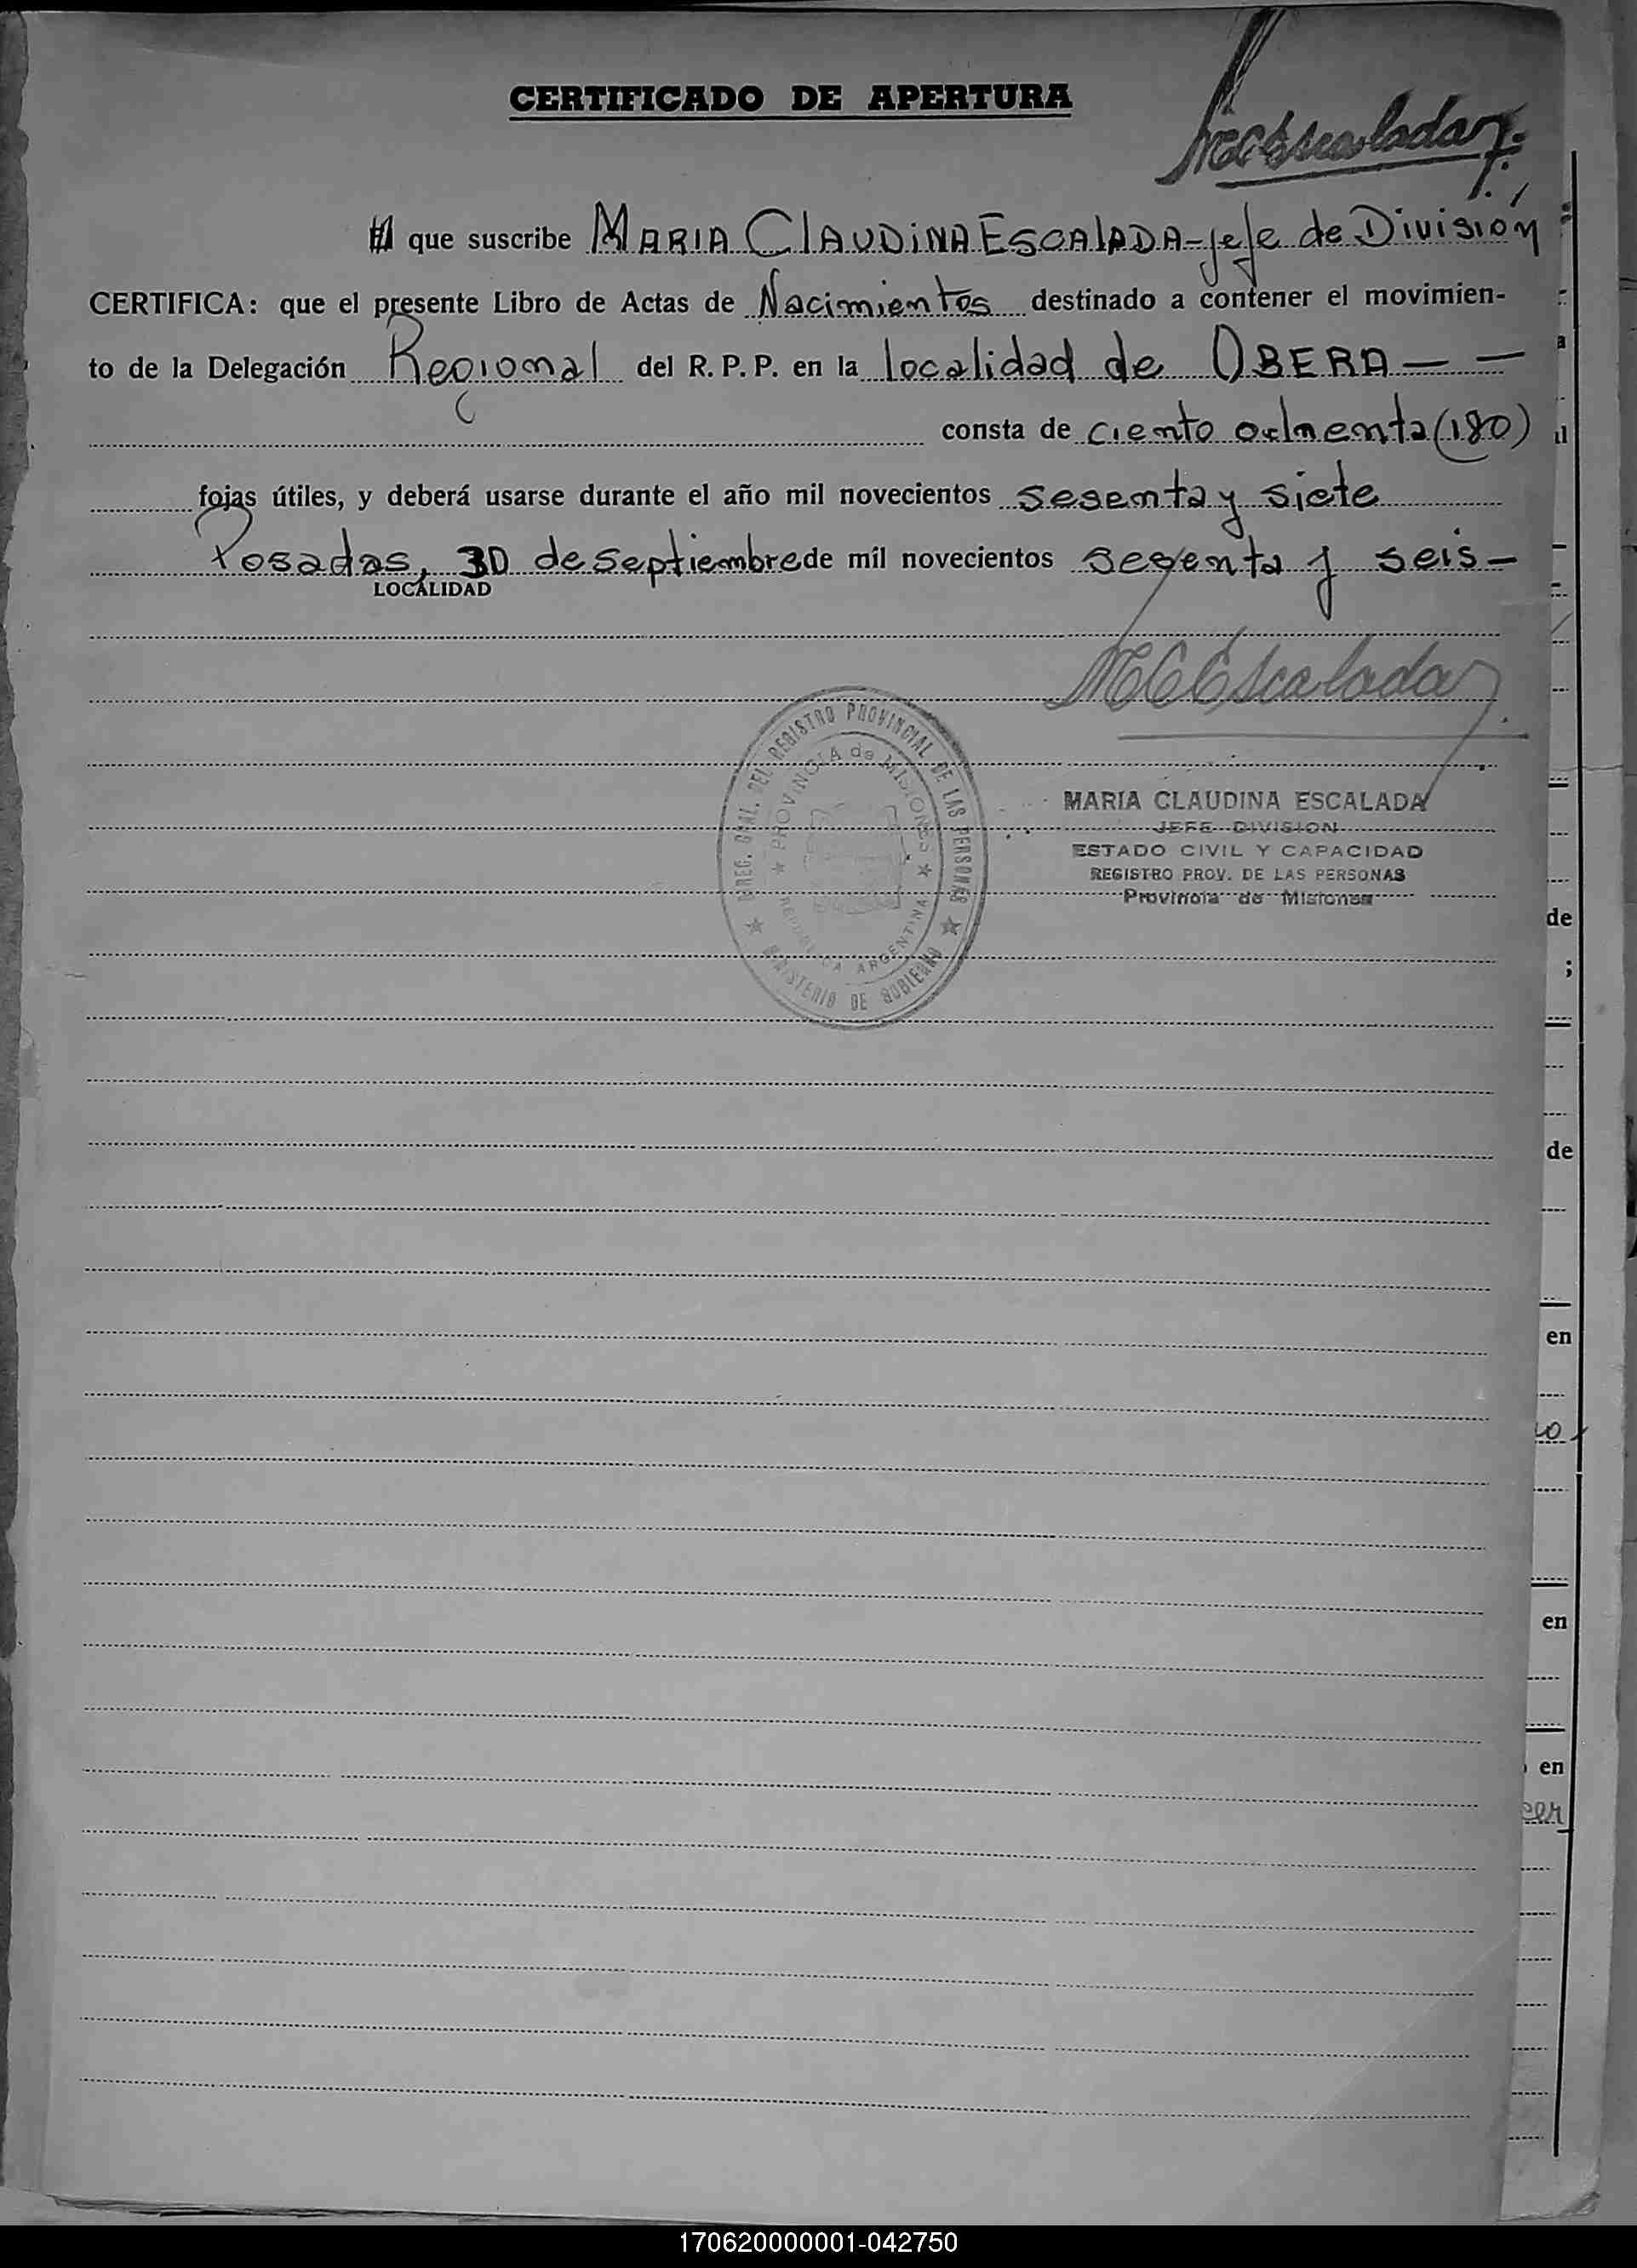 CERTIFICADO DE APERTURA
MCEscalada
El que suscribe MARIA ClAUDiNA ESCAlADA - Jefe de División
CERTIFICA: que el presente Libro de Actas de Nacimientos destinado a contener el movimien-
to de la Delegación Regional del R. P. P. en la localidad de OBERA — —
consta de ciento ochenta (180)
fojas útiles, y deberá usarse durante el año mil novecientos sesenta y siete
Posadas, 30 de Septiembre de mil novecientos sesenta y seis -
LOCALIDAD
MCEscalada
DIREC. GRAL. DEL REGISTRO PROVINCIAL DE LAS PERSONAS
PROVINCIA de MISIONES
REPUBLICA ARGENTINA
MINISTERIO DE GOBIERNO
MARIA CLAUDINA ESCALADA
JEFE DIVISION
ESTADO CIVIL Y CAPACIDAD
REGISTRO PROV. DE LAS PERSONAS
Provincia de Misiones
de
;
de
en
en
en
170620000001-042750